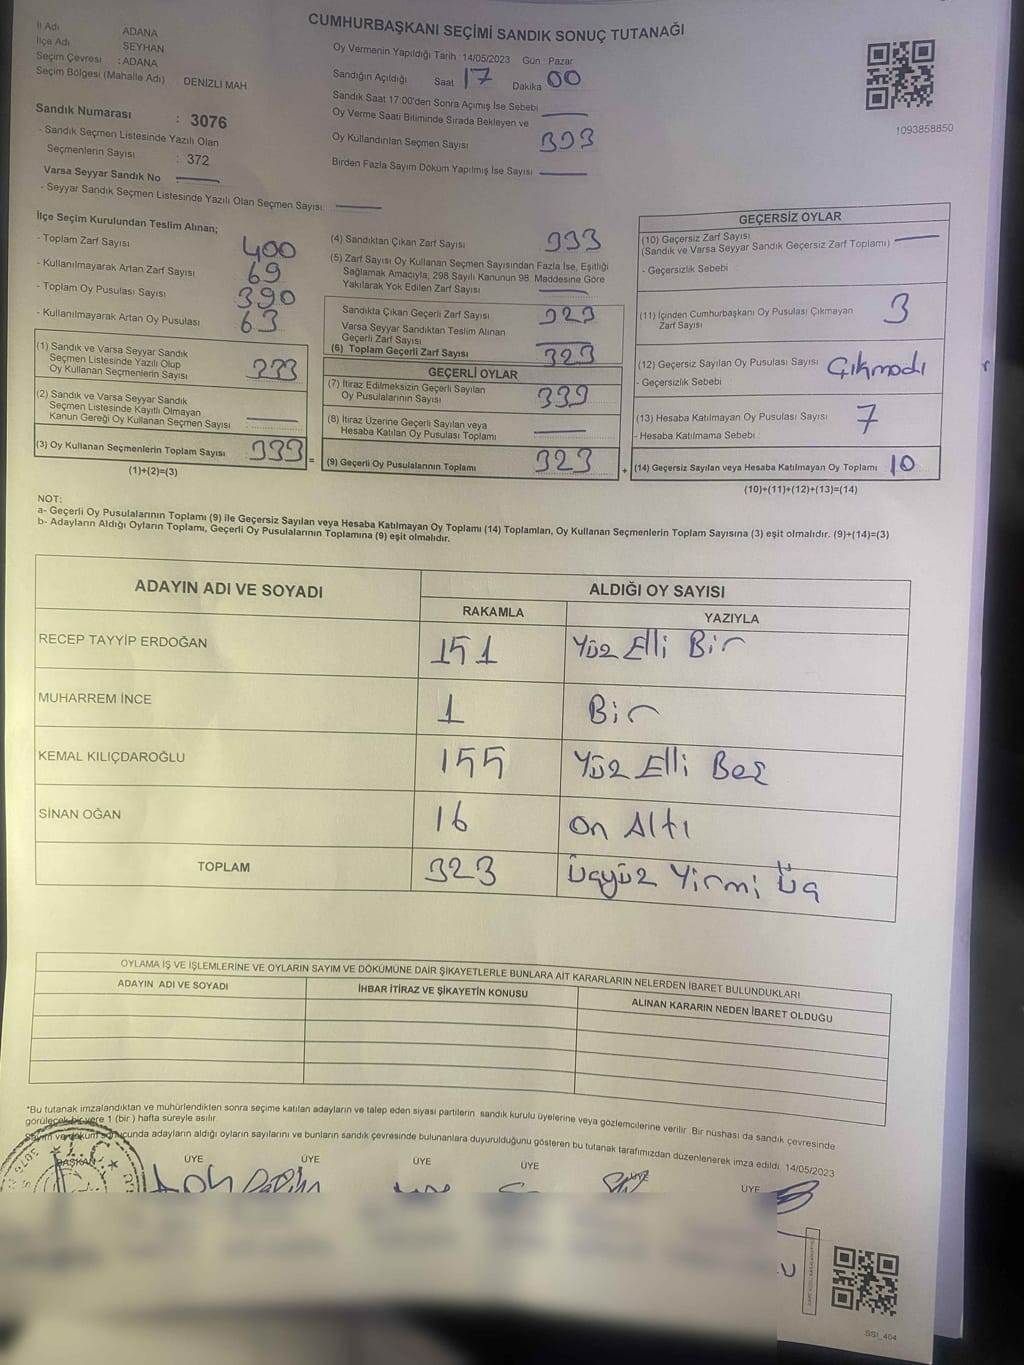 CUMHURBAŞKANI SEÇİMİ SANDIK SONUÇ TUTANAĞI
İl Adı ADANA
İlçe Adı SEYHAN
Seçim Çevresi : ADANA
Seçim Bölgesi (Mahalle Adı) DENİZLİ MAH.
Oy Vermenin Yapıldığı Tarih : 14/05/2023 Gün : Pazar
Sandığın Açıldığı Saat 17 Dakika 00
Sandık Saat 17:00'den Sonra Açımış İse Sebebi
Oy Verme Saati Bitiminde Sırada Bekleyen ve
Oy Kullandırılan Seçmen Sayısı 333
Birden Fazla Sayım Döküm Yapılmış İse Sayısı
1093858850
Sandık Numarası : 3076
- Sandık Seçmen Listesinde Yazılı Olan
Seçmenlerin Sayısı : 372
Varsa Seyyar Sandık No
- Seyyar Sandık Seçmen Listesinde Yazılı Olan Seçmen Sayısı:
İlçe Seçim Kurulundan Teslim Alınan;
- Toplam Zarf Sayısı 400
- Kullanılmayarak Artan Zarf Sayısı 69
- Toplam Oy Pusulası Sayısı 390
- Kullanılmayarak Artan Oy Pusulası 63
(1) Sandık ve Varsa Seyyar Sandık
Seçmen Listesinde Yazılı Olup
Oy Kullanan Seçmenlerin Sayısı 333
(2) Sandık ve Varsa Seyyar Sandık
Seçmen Listesinde Kayıtlı Olmayan
Kanun Gereği Oy Kullanan Seçmen Sayısı :
(3) Oy Kullanan Seçmenlerin Toplam Sayısı 333 =
(1)+(2)=(3)
(4) Sandıktan Çıkan Zarf Sayısı 333
(5) Zarf Sayısı Oy Kullanan Seçmen Sayısından Fazla İse, Eşitliği
Sağlamak Amacıyla, 298 Sayılı Kanunun 98. Maddesine Göre
Yakılarak Yok Edilen Zarf Sayısı
Sandıkta Çıkan Geçerli Zarf Sayısı 323
Varsa Seyyar Sandıktan Teslim Alınan
Geçerli Zarf Sayısı
(6) Toplam Geçerli Zarf Sayısı 323
GEÇERLİ OYLAR
(7) İtiraz Edilmeksizin Geçerli Sayılan
Oy Pusulalarının Sayısı 333
(8) İtiraz Üzerine Geçerli Sayılan veya
Hesaba Katılan Oy Pusulası Toplamı
(9) Geçerli Oy Pusulalarının Toplamı 323 +
GEÇERSİZ OYLAR
(10) Geçersiz Zarf Sayısı
(Sandık ve Varsa Seyyar Sandık Geçersiz Zarf Toplamı)
- Geçersizlik Sebebi
(11) İçinden Cumhurbaşkanı Oy Pusulası Çıkmayan
Zarf Sayısı 3
(12) Geçersiz Sayılan Oy Pusulası Sayısı Çıkmadı
- Geçersizlik Sebebi
(13) Hesaba Katılmayan Oy Pusulası Sayısı 7
- Hesaba Katılmama Sebebi
(14) Geçersiz Sayılan veya Hesaba Katılmayan Oy Toplamı 10
(10)+(11)+(12)+(13)=(14)
NOT:
a- Geçerli Oy Pusulalarının Toplamı (9) ile Geçersiz Sayılan veya Hesaba Katılmayan Oy Toplamı (14) Toplamları, Oy Kullanan Seçmenlerin Toplam Sayısına (3) eşit olmalıdır. (9)+(14)=(3)
b- Adayların Aldığı Oyların Toplamı, Geçerli Oy Pusulalarının Toplamına (9) eşit olmalıdır.
ADAYIN ADI VE SOYADI ALDIĞI OY SAYISI
RAKAMLA YAZIYLA
RECEP TAYYİP ERDOĞAN 151 Yüz Elli Bir
MUHARREM İNCE 1 Bir
KEMAL KILIÇDAROĞLU 155 Yüz Elli Beş
SİNAN OĞAN 16 on Altı
TOPLAM 323 üçyüz Yirmi üç
OYLAMA İŞ VE İŞLEMLERİNE VE OYLARIN SAYIM VE DÖKÜMÜNE DAİR ŞİKAYETLERLE BUNLARA AİT KARARLARIN NELERDEN İBARET BULUNDUKLARI
ADAYIN ADI VE SOYADI İHBAR İTİRAZ VE ŞİKAYETİN KONUSU ALINAN KARARIN NEDEN İBARET OLDUĞU
*Bu tutanak imzalandıktan ve mühürlendikten sonra seçime katılan adayların ve talep eden siyasi partilerin sandık kurulu üyelerine veya gözlemcilerine verilir. Bir nüshası da sandık çevresinde
görülecek bir yere 1 (bir ) hafta süreyle asılır.
Sayım ve döküm sonucunda adayların aldığı oyların sayılarını ve bunların sandık çevresinde bulunanlara duyurulduğunu gösteren bu tutanak tarafımızdan düzenlenerek imza edildi. 14/05/2023
BAŞKAN ÜYE ÜYE ÜYE ÜYE ÜYE ÜYE
SSI_404